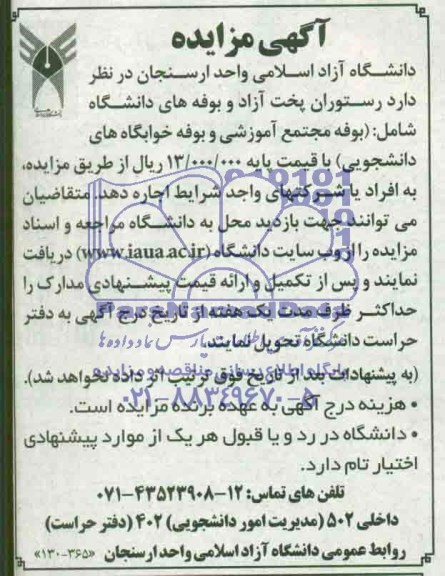 آگهی مزایده
دانشگاه آزاد اسلامی واحد ارسنجان در نظر
دارد رستوران پخت آزاد و بوفه های دانشگاه
شامل: (بوفه مجتمع آموزشی و بوفه خوابگاه های
دانشجویی) با قیمت پایه ۱۳/۰۰۰/۰۰۰ ریال از طریق مزایده،
به افراد یا شرکتهای واجد شرایط اجاره دهد. متقاضیان
می توانند جهت بازدید محل به دانشگاه مراجعه و اسناد
مزایده را از وب سایت دانشگاه (www.iaua.ac.ir) دریافت
نمایند و پس از تکمیل و ارائه قیمت پیشنهادی مدارک را
حداکثر ظرف مدت یک هفته از تاریخ درج آگهی به دفتر
حراست دانشگاه تحویل نمایند.
(به پیشنهادات بعد از تاریخ فوق ترتیب اثر داده نخواهد شد).
• هزینه درج آگهی به عهده برنده مزایده است.
• دانشگاه در رد و یا قبول هر یک از موارد پیشنهادی
اختیار تام دارد.
تلفن های تماس: ۱۲-۴۳۵۲۳۹۰۸-۰۷۱
داخلی ۵۰۲ (مدیریت امور دانشجویی) ۴۰۲ (دفتر حراست)
روابط عمومی دانشگاه آزاد اسلامی واحد ارسنجان «۳۶۵-۱۳۰»
پایگاه اطلاع رسانی مناقصه و مزایده
۰۲۱-۸۸۳۴۹۶۷۰-۵